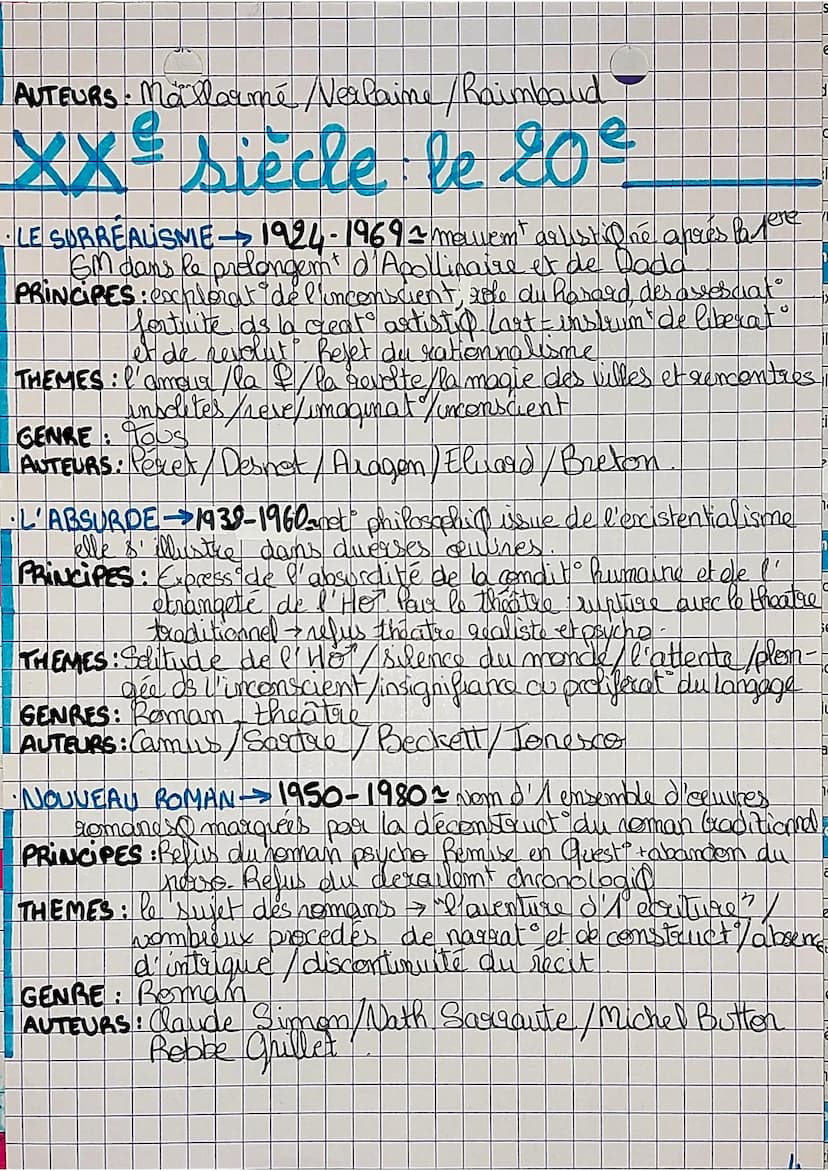 AUTEURS : Mallarmé / Verlaine / Raimbaud
XXe siècle : le 20e
• LE SURRÉALISME → 1924-1969 ≃ mouvemt artistiQ né après la 1ere
GM dans le prolongemt d'Apollinaire et de Dada
PRINCIPES : explorat° de l'inconscient, role du hasard, des associat°
fortuite ds la creat° artistiQ l'art = instrumt de liberat°
et de revolut°. Rejet du rationnalisme
THEMES : l'amour / la ♀ / la revolte / la magie des villes et rencontres
insolites / reve / imaginat° / inconscient
GENRE : Tous
AUTEURS : Péret / Desnot / Aragon / Eluard / Breton.
• L'ABSURDE → 1939-1960 ≃ not° philosophiQ issue de l'existentialisme
elle s'illustre dans diverses œuvres.
PRINCIPES : Express° de l'absurdité de la condit° humaine et de l'
étrangeté de l'Ho. Pour le théâtre : rupture avec le theatre
traditionnel → refus théatre realiste et psycho.
THEMES : Solitude de l'Ho / silence du monde / l'attente / plon-
gée ds l'inconscient / insignifiance ou proliferat° du langage
GENRES : Roman, théâtre
AUTEURS : Camus / Sartre / Beckett / Ionesco
• NOUVEAU ROMAN → 1950-1980 ≃ Nom d'1 ensemble d'oeuvres
romanesQ marquées par la déconstruct° du roman traditionnel
PRINCIPES : Refus du roman psycho Remise en Quest° + abandon du
perso. Refus du deroulemt chronologiQ
THEMES : le sujet des romans → "l'aventure d'1 ecriture" /
nombreux procédés de narrat° et de construct° / absence
d'intrigue / discontinuité du récit.
GENRE : Roman
AUTEURS : Claude Simon / Nath Sarraute / Michel Button
Robbe Grillet.